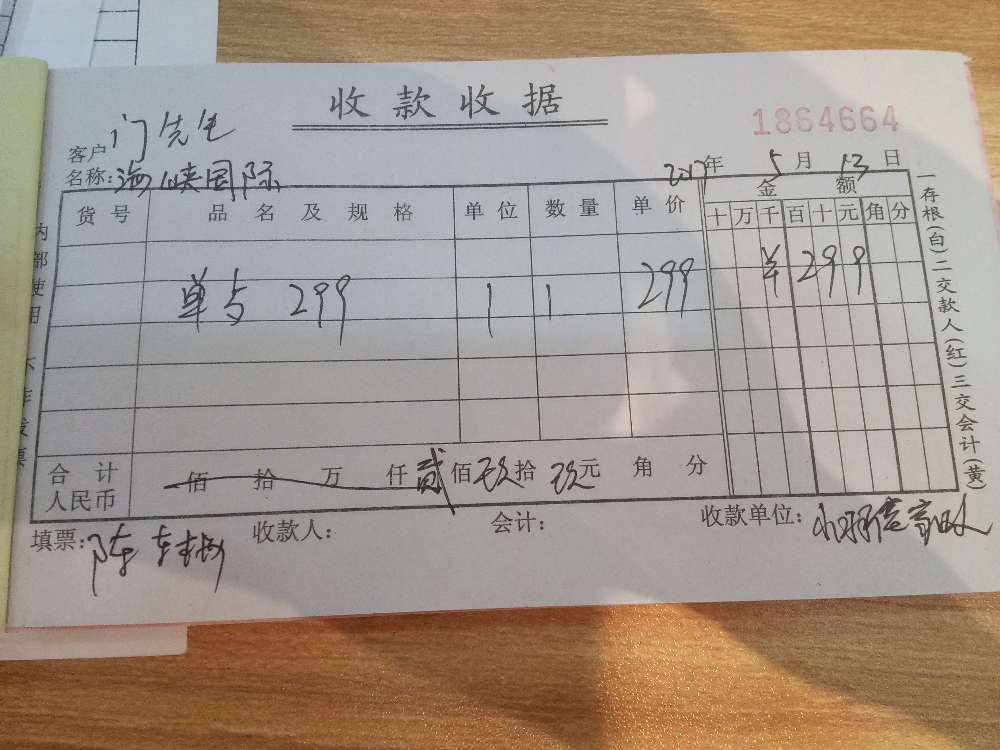 收款收据
1864664
门先生
客户
名称:海峡国际
2017年5月13日
货号 品名及规格 单位 数量 单价 金额
十万千百十元角分
单 299 1 1 299 ¥299
合计
人民币
佰 拾 万 仟贰佰玖拾玖元 角 分
填票:陈 收款人: 会计: 收款单位:
一存根(白)二交款人(红)三交会计(黄)
内部使用 不作发票